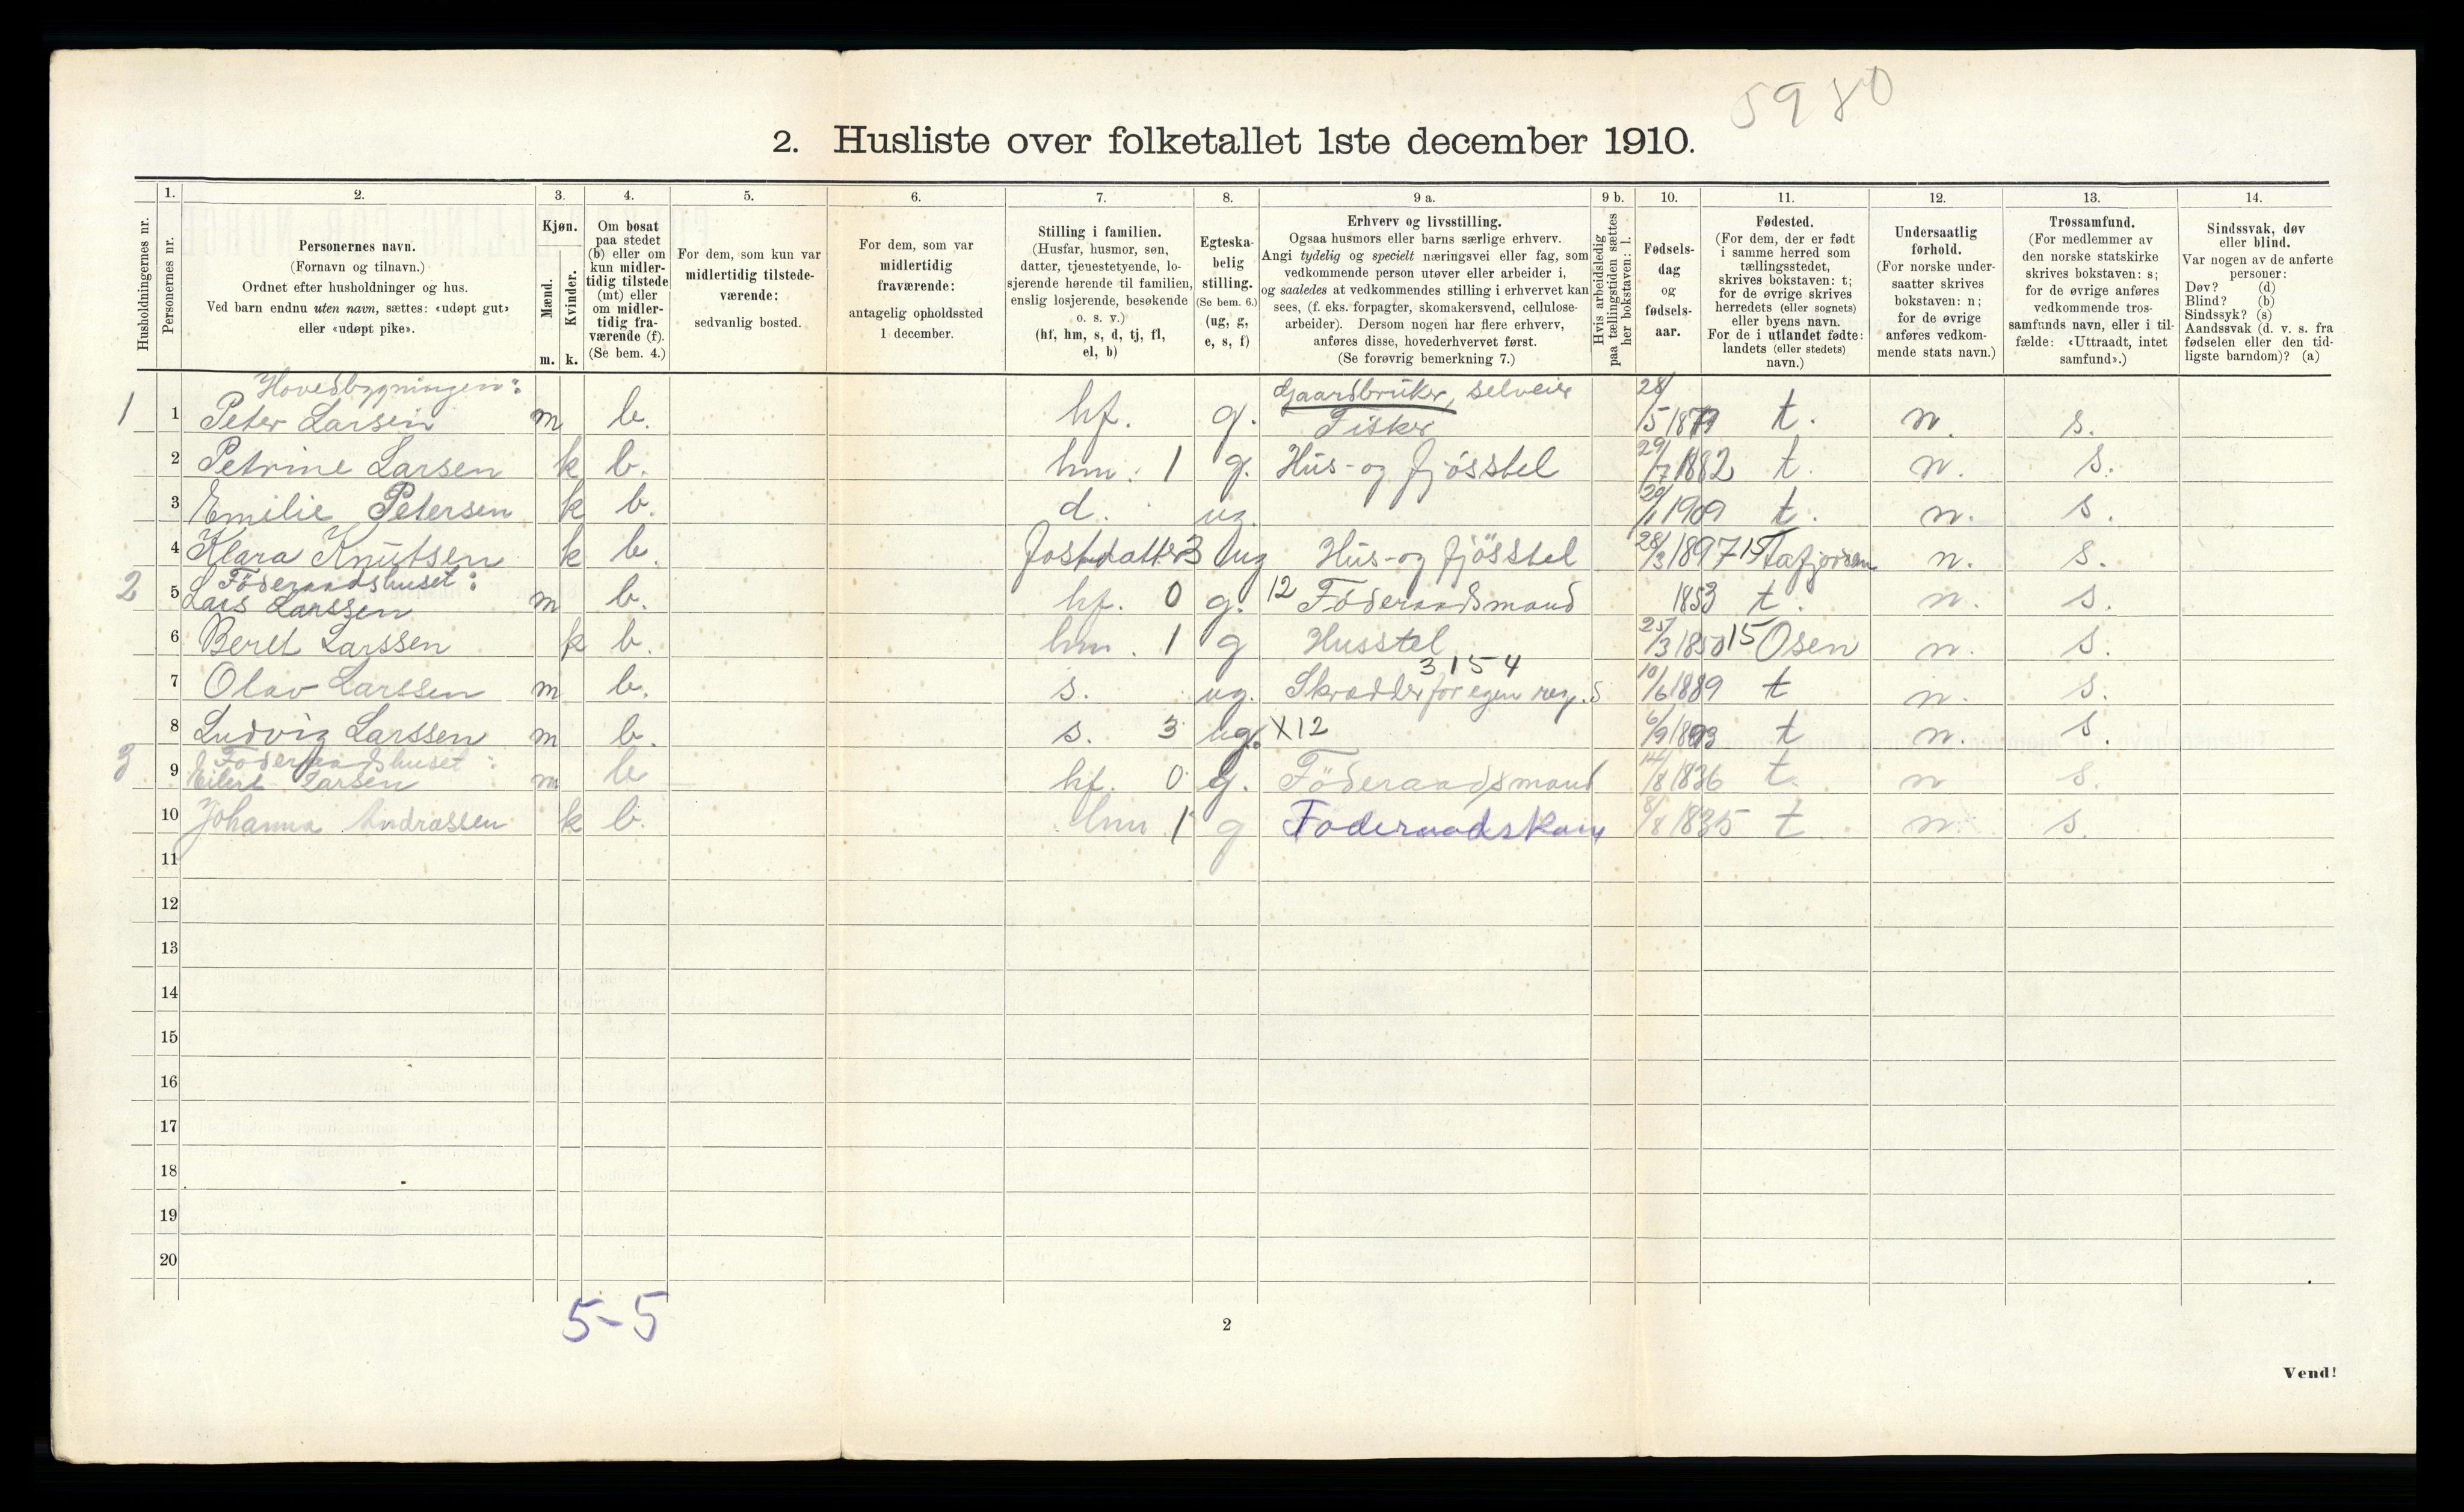 5980
2. Husliste over folketallet 1ste december 1910.
Husholdningernes nr.
1.
Personernes nr.
2.
Personernes navn.
(Fornavn og tilnavn.)
Ordnet efter husholdninger og hus.
Ved barn endnu uten navn, sættes: «udøpt gut»
eller «udøpt pike».
3.
Kjøn.
Mænd.
Kvinder.
m. k.
4.
Om bosat
paa stedet
(b) eller om
kun midler-
tidig tilstede
(mt) eller
om midler-
tidig fra-
værende (f).
(Se bem. 4.)
5.
For dem, som kun var
midlertidig tilstede-
værende:
sedvanlig bosted.
6.
For dem, som var
midlertidig
fraværende:
antagelig opholdssted
1 december.
7.
Stilling i familien.
(Husfar, husmor, søn,
datter, tjenestetyende, lo-
sjerende hørende til familien,
enslig losjerende, besøkende
o. s. v.)
(hf, hm, s, d, tj, fl,
el, b)
8.
Egteska-
belig
stilling.
(Se bem. 6.)
(ug, g,
e, s, f)
9 a.
Erhverv og livsstilling.
Ogsaa husmors eller barns særlige erhverv.
Angi tydelig og specielt næringsvei eller fag, som
vedkommende person utøver eller arbeider i,
og saaledes at vedkommendes stilling i erhvervet kan
sees, (f. eks. forpagter, skomakersvend, cellulose-
arbeider). Dersom nogen har flere erhverv,
anføres disse, hovederhvervet først.
(Se forøvrig bemerkning 7.)
9 b.
Hvis arbeidsledig
paa tællingstiden sættes
her bokstaven: l.
10.
Fødsels-
dag
og
fødsels-
aar.
11.
Fødested.
(For dem, der er født
i samme herred som
tællingsstedet,
skrives bokstaven: t;
for de øvrige skrives
herredets (eller sognets)
eller byens navn.
For de i utlandet fødte:
landets (eller stedets)
navn.)
12.
Undersaatlig
forhold.
(For norske under-
saatter skrives
bokstaven: n;
for de øvrige
anføres vedkom-
mende stats navn.)
13.
Trossamfund.
(For medlemmer av
den norske statskirke
skrives bokstaven: s;
for de øvrige anføres
vedkommende tros-
samfunds navn, eller i til-
fælde: «Uttraadt, intet
samfund».)
14.
Sindssvak, døv
eller blind.
Var nogen av de anførte
personer:
Døv? (d)
Blind? (b)
Sindssyk? (s)
Aandssvak (d. v. s. fra
fødselen eller den tid-
ligste barndom)? (a)
Hovedbygningen:
1 1 Peter Larsen m b. hf. g. Gaardbruker, selveier Fisker 28/5 18 t. n. s.
2 Petrine Larsen k b. hm. 1 g. Hus- og fjösstel 29/7 1882 t. n. s.
3 Emilie Petersen k b. d. ug. 1909 t. n. s.
4 Klara Knutsen k b. fostdatter 3 ug Hus- og fjösstel 28/3 1897 15 n. s.
Föderaadshuset:
2 5 Lars Larssen m b. hf. 0 g. 12 Föderaadsmand 1853 t. n. s.
6 Beret Larssen k b. hm. 1 g Husstel 25/3 1850 15 Osen n. s.
7 Olav Larssen m b. s. ug. Skrædder for egen regn. 3154 10/6 1889 t n. s.
8 Ludvig Larssen m b. s. 3 ug. X12 6/9 1893 t n. s.
Föderaadshuset:
3 9 Eilert Larsen m b hf. 0 g. Föderaadsmand 14/8 1836 t. n s.
10 Johanna Andreassen k b. hm 1 g Føderaadskone 8/8 1835 t n. s.
11
12
13
14
15
16
17
18
19
20
5-5
2
Vend!